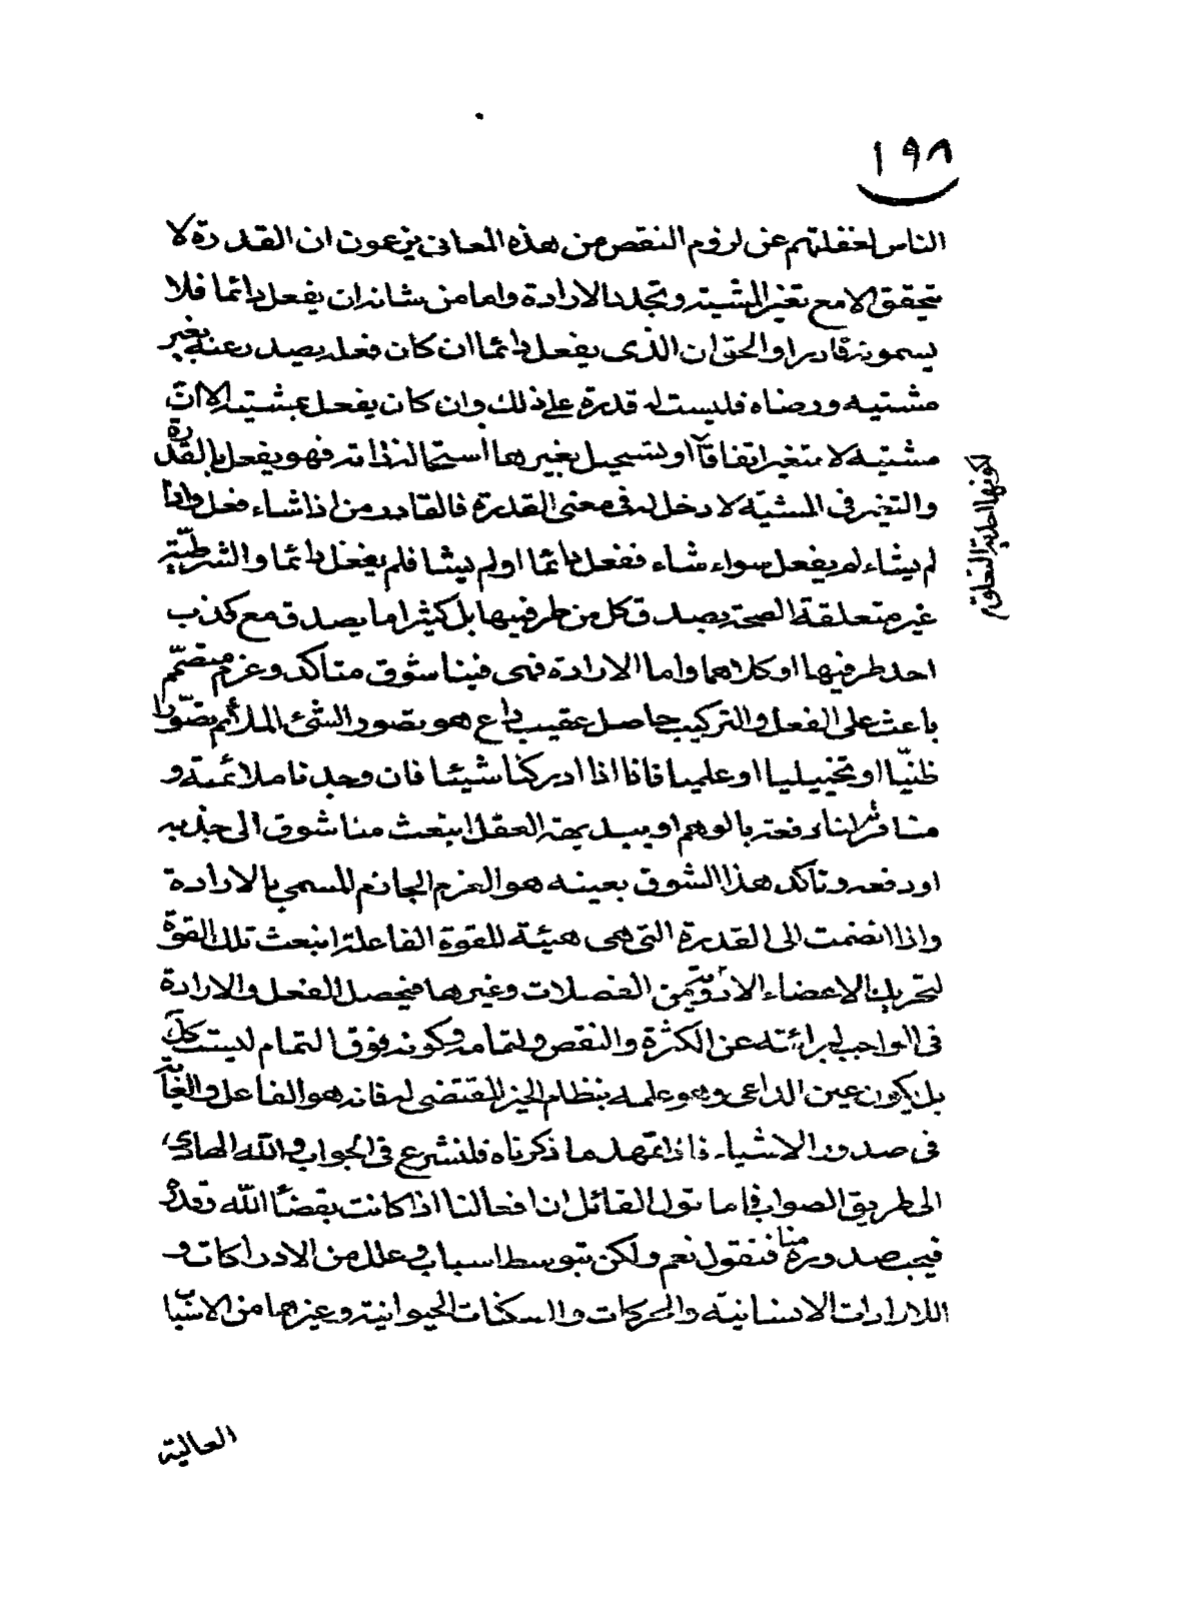 ١٩٨
الناس لغفلتهم عن لزوم النقص من هذه المعانى يزعمون ان القدرة لا
يتحقق الا مع تغير المشية وتجدد الارادة واما من شانه ان يفعل دائما فلا
يسمونه قادرا والحق ان الذى يفعل دائما ان كان فعله يصدر عنه بغير
مشتيه ورضاه فليست له قدرة على ذلك وان كان يفعل بمشتيه الا انّ
مشتيه لا متغير اتفاقاً او لتسحيل بغيرها استحالة ذاته فهو يفعل بالقدرة
والتغير فى المشيّة لا دخل له فى معنى القدرة فالقادر من اذا شاء فعل واذا
لم يشاء لم يفعل سواء شاء ففعل دائما او لم يشا فلم يفعل دائما والشرطيّة
غير متعلقة الصحة بصدق كل من طرفيها بل كثيرا ما يصدق مع كذب
احد طرفيها او كلاهما واما الارادة فهى فينا شوق متاكد وعزم مصمّم
باعث على الفعل والتركيب حاصل عقيب داع هو تصور الشئ الملائم تصّورا
ظنيّا او تخييليا او علميا فانا اذا ادركنا شيئا فان وجدنا ملائمته و
منافرته لنا دفعة بالوهم او ببديهة العقل انبعث منا شوق الى جذبه
او دفعه وتاكد هذا الشوق بعينه هو العزم الجازم المسمى بالارادة
واذا انضمت الى القدرة التى هى هيئة للقوة الفاعلة انبعث تلك القوة
لتحريك الاعضاء الادويّة من العضلات وغيرها فيحصل الفعل والارادة
فى الواجب لبرائته عن الكثرة والنقص ولتمامه وكونه فوق التمام ليست كل
بل يكون عين الداعى وهو علمه بنظام الخير المقتضى له فانه هو الفاعل والغاية
فى صدور الاشياء فاذا تمهد ما ذكرناه فلنشرع فى الجواب والله الهادى
الى طريق الصواب فاما قول القائل ان افعالنا اذا كانت بقضأ الله وقدره
فيجب صدوره منا فنقول نعم ولكن بتوسط اسباب وعلل من الادراكات و
اللارادات الانسانيّه والحركات والسكنات الحيوانية وغيرها من الاسباب
العالية
لكونها احدية التعلق م